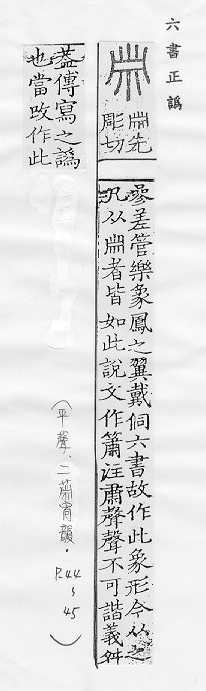 六書正譌
先
彫切
參差管樂象鳳之翼戴侗六書故作此象形今从之
凡从者皆如此說文作簫注肅聲聲不可諧義舛
蓋傳寫之譌
也當攺作此
（平聲．二蕭宵韻．P.44~45）